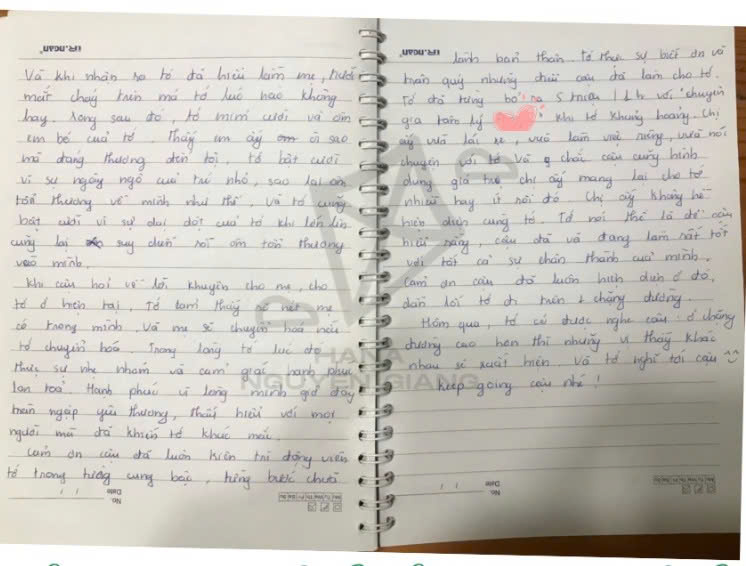 Và khi nhận ra tớ đã hiểu lầm mẹ, nước
mắt chảy trên má tớ lúc nào không
hay. Xong sau đó, tớ mỉm cười và ôm
em bé của tớ. Thấy em ấy sao
mà đáng thương đến tội, tớ bật cười
vì sự ngây ngô của trẻ nhỏ, sao lại ôm
tổn thương về mình như thế. Và tớ cũng
bật cười vì sự dại dột của tớ khi lớn lên
cũng lại suy diễn rồi ôm tổn thương
vào mình.
Khi cậu hỏi về lời khuyên cho mẹ, cho
tớ ở hiện tại, Tớ cảm thấy nét mẹ
có trong mình. Và mẹ sẽ chuyển hoá nếu
tớ chuyển hoá. Trong lòng tớ lúc đó
thực sự nhẹ nhõm và cảm giác hạnh phúc
lan toả. Hạnh phúc vì lòng mình giờ đây
tràn ngập yêu thương, thấu hiểu với một
người mà đã khiến tớ khúc mắc.
Cảm ơn cậu đã luôn kiên trì động viên
tớ trong từng cung bậc, từng bước chữa
No.
Date
lành bản thân. Tớ thực sự biết ơn và
trân quý những điều cậu đã làm cho tớ.
Tớ đã từng bỏ ra 5 triệu / 1h với "chuyên
gia tâm lý" khi tớ khủng hoảng. Chị
ấy vừa lái xe, vừa làm việc riêng, vừa nói
chuyện với tớ. Và chắc cậu cũng hình
dung giá trị chị ấy mang lại cho tớ
nhiều hay ít rồi đó. Chị ấy không hề
hiện diện cùng tớ. Tớ nói thế là để cậu
hiểu rằng, cậu đã và đang làm rất tốt
với tất cả sự chân thành của mình.
Cảm ơn cậu đã luôn hiện diện ở đó,
dẫn lối tớ đi trên 1 chặng đường.
Hôm qua, tớ có được nghe câu: ở chặng
đường cao hơn thì những vị thầy khác
nhau sẽ xuất hiện. Và tớ nghĩ tới cậu ^^
Keep going cậu nhé!
No.
Date
HANA
NGUYEN GIANG